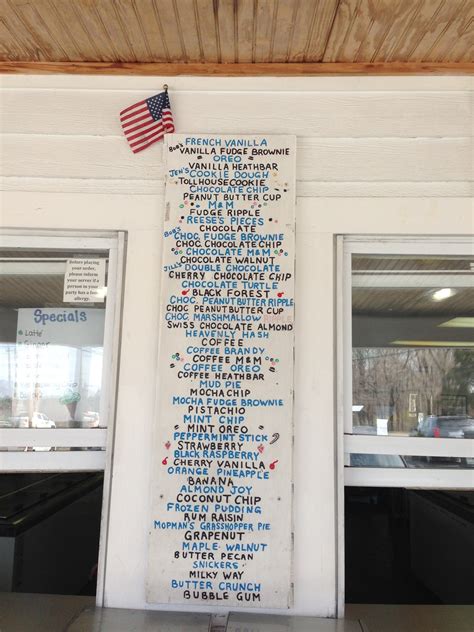 FRENCH VANILLA
Bob's VANILLA FUDGE BROWNIE
OREO
VANILLA HEATHBAR
Jen's COOKIE DOUGH
TOLLHOUSE COOKIE
CHOCOLATE CHIP
PEANUT BUTTER CUP
M&M
FUDGE RIPPLE
REESE'S PIECES
CHOCOLATE
Bob's CHOC. FUDGE BROWNIE
CHOC. CHOCOLATE CHIP
CHOCOLATE M&M
CHOCOLATE WALNUT
JILL'S DOUBLE CHOCOLATE
CHERRY CHOCOLATE CHIP
CHOCOLATE TURTLE
BLACK FOREST
CHOC. PEANUT BUTTER RIPPLE
CHOC. PEANUT BUTTER CUP
CHOC. MARSHMALLOW
SWISS CHOCOLATE ALMOND
HEAVENLY HASH
COFFEE
COFFEE BRANDY
COFFEE M&M
COFFEE OREO
COFFEE HEATHBAR
MUD PIE
MOCHA CHIP
MOCHA FUDGE BROWNIE
PISTACHIO
MINT CHIP
MINT OREO
PEPPERMINT STICK
STRAWBERRY
BLACK RASPBERRY
CHERRY VANILLA
ORANGE PINEAPPLE
BANANA
ALMOND JOY
COCONUT CHIP
FROZEN PUDDING
RUM RAISIN
MOPMAN'S GRASSHOPPER PIE
GRAPENUT
MAPLE WALNUT
BUTTER PECAN
SNICKERS
MILKY WAY
BUTTER CRUNCH
BUBBLE GUM
Before placing
your order,
please inform
your server if a
person in your
party has a food
allergy.
Specials
Latte